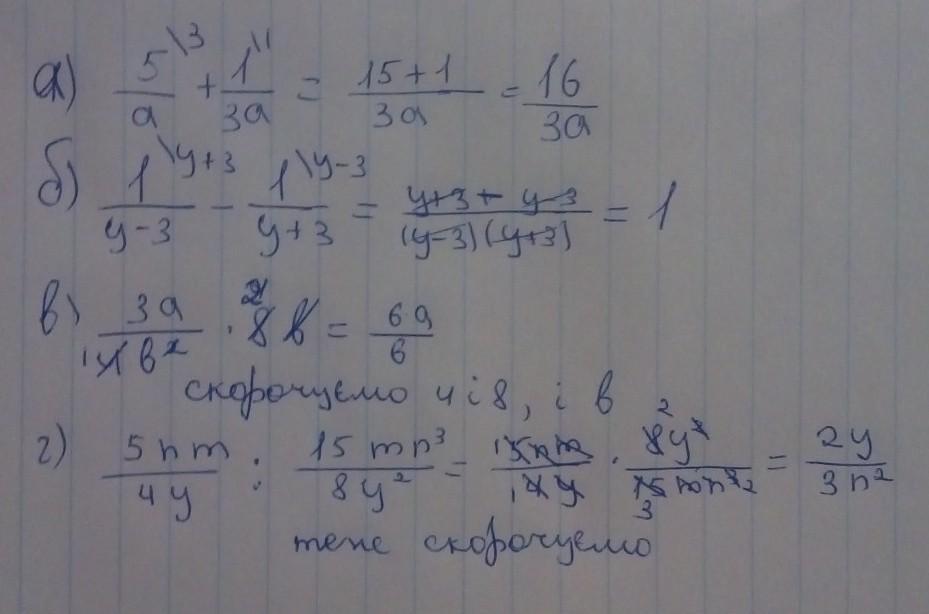 а) 5\3/a + 1\1/3a = 15+1/3a = 16/3a
б) 1\y+3/y-3 - 1\y-3/y+3 = y+3+y-3/(y-3)(y+3) = 1
в) 3a/4в² · 8в = 6a/в
скорочуємо 4 і 8, і в
г) 5nm/4y : 15mn³/8y² = 5nm/4y · 8y²/15mn³ = 2y/3n²
теж скорочуємо